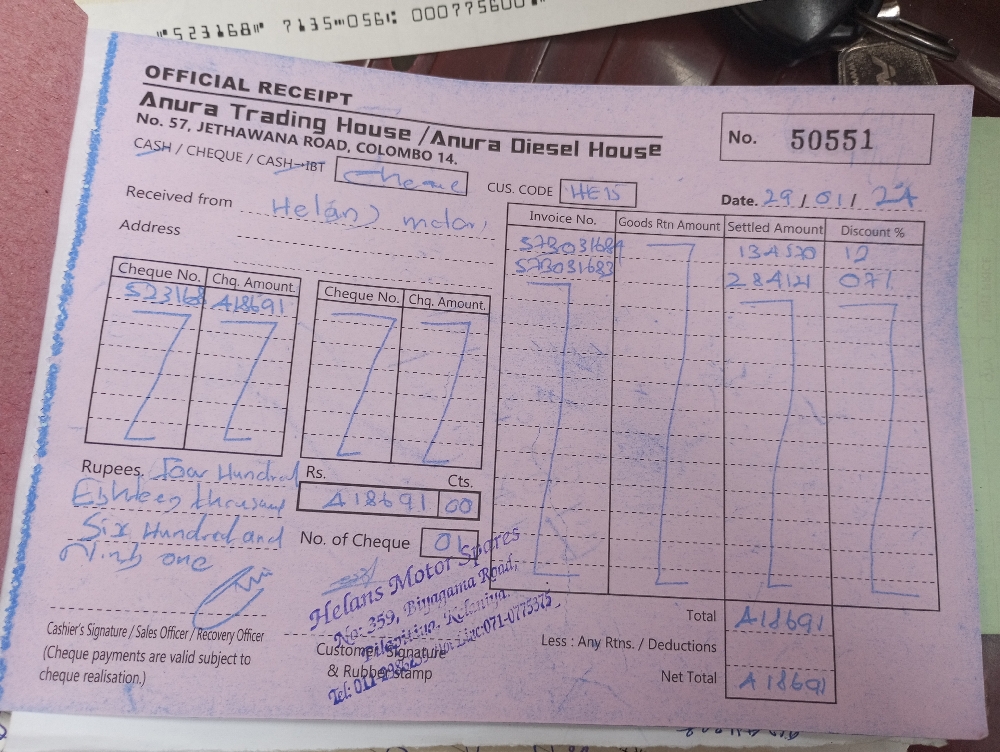 ⑈523168⑈ 7135⑉056⑆ 000775600
OFFICIAL RECEIPT
Anura Trading House / Anura Diesel House
No. 57, JETHAWANA ROAD, COLOMBO 14.
No. 50551
CASH / CHEQUE / CASH-IBT cheque
CUS. CODE HE15
Date. 29 / 01 / 24
Received from Helans motor
Address
Invoice No. Goods Rtn Amount Settled Amount Discount %
573031684 134570 12
573031683 284121 07
Cheque No. Chq. Amount.
523168 418691
Cheque No. Chq. Amount.
Rupees. Four Hundred
Eighteen thousand
Six Hundred and
Ninty one
Rs. Cts.
418691 00
No. of Cheque 01
Helans Motor Spores
No: 359, Biyagama Road,
Pilapitiya, Kelaniya.
Hot Line:071-0775375
Cashier's Signature / Sales Officer / Recovery Officer
(Cheque payments are valid subject to
cheque realisation.)
Customer Signature
& Rubber Stamp
Total 418691
Less : Any Rtns. / Deductions
Net Total 418691